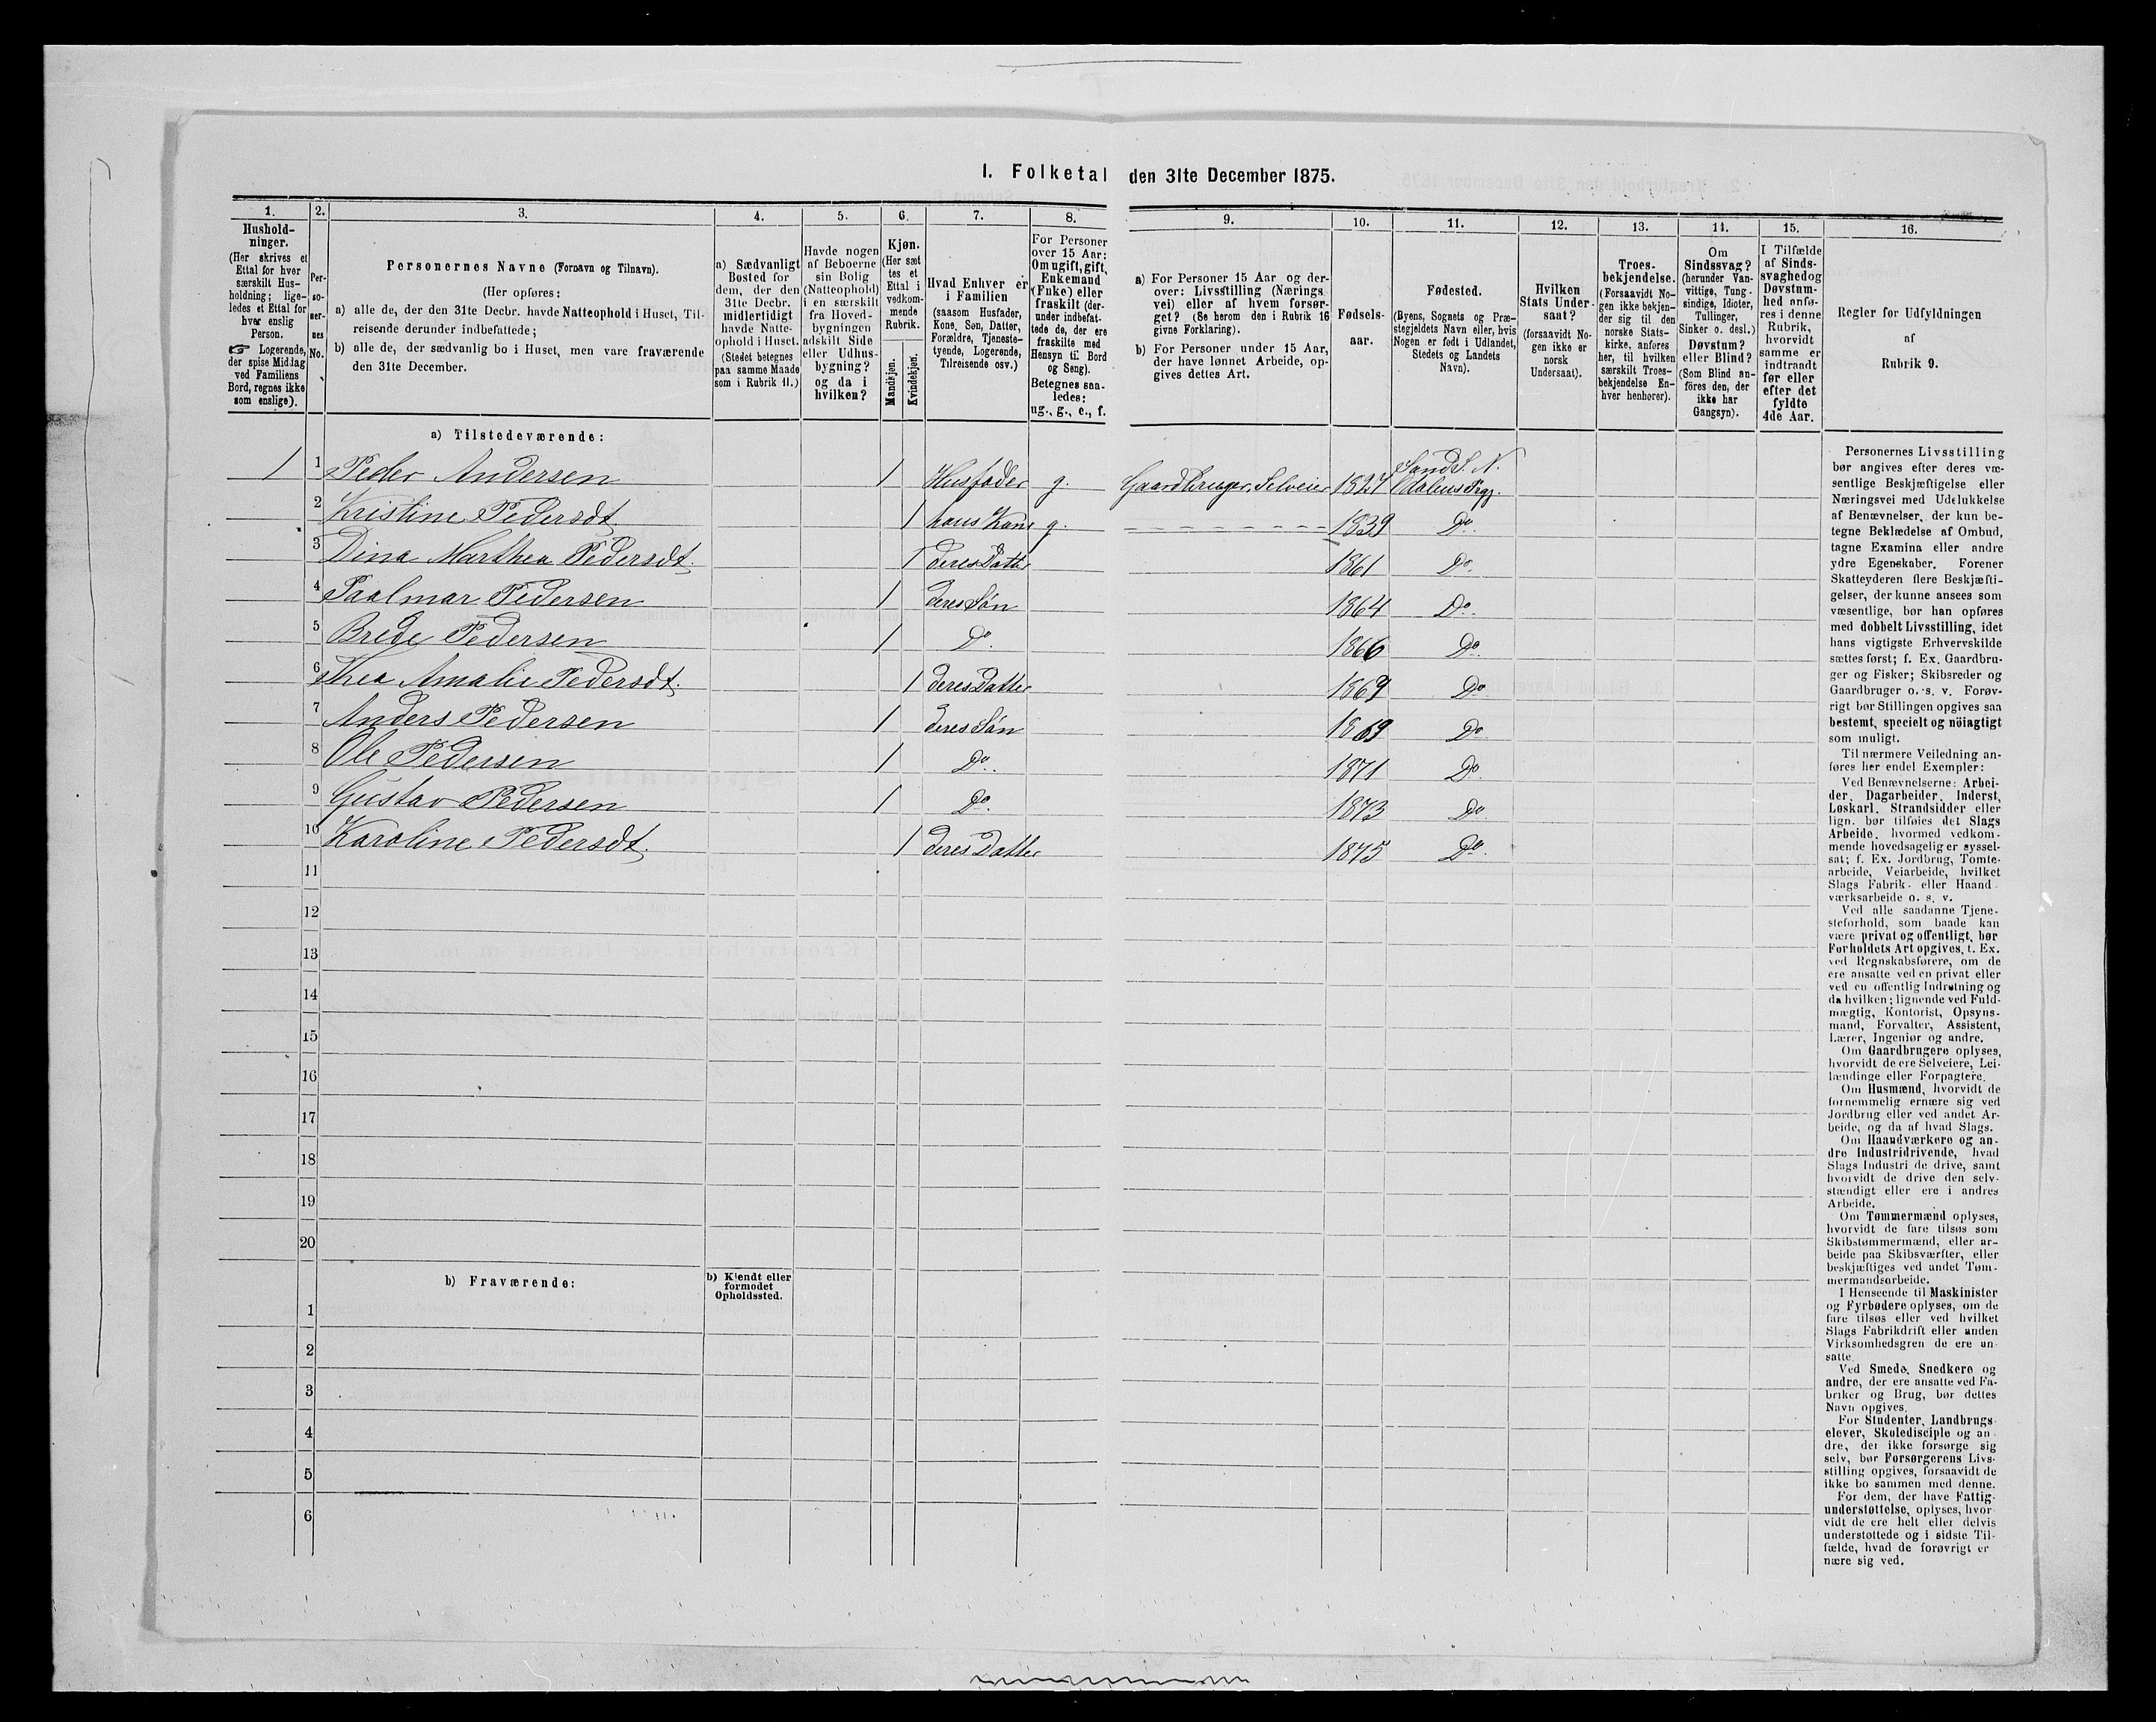 1. Folketal den 31te December 1875.
1. 2. 3. 4. 5. 6. 7. 8. 9. 10. 11. 12. 13. 14. 15. 16.
Hushold-
ninger.
(Her skrives et
Ettal for hver
særskilt Hus-
holdning; lige-
ledes et Ettal for
hver enslig
Person.
☞ Logerende,
der spise Middag
ved Familiens
Bord, regnes ikke
som enslige).
Per-
so-
ner-
nes
No.
Personernes Navne (Fornavn og Tilnavn).
(Her opføres:
a) alle de, der den 31te Decbr. havde Natteophold i Huset, Til-
reisende derunder indbefattede;
b) alle de, der sædvanlig bo i Huset, men vare fraværende
den 31te December.
a) Sædvanligt
Bosted for
dem, der den
31te Decbr.
midlertidigt
havde Natte-
ophold i Huset.
(Stedet betegnes
paa samme Maade
som i Rubrik 11.)
Havde nogen
af Beboerne
sin Bolig
(Natteophold)
i en særskilt
fra Hoved-
bygningen
adskilt Side
eller Udhus-
bygning?
og da i
hvilken?
Kjøn.
(Her sæt
tes et
Ettal i
vedkom-
mende
Rubrik.
Mandkjøn.
Kvindekjøn.
Hvad Enhver er
i Familien
(saasom Husfader,
Kone, Søn, Datter,
Forældre, Tjeneste-
tyende, Logerende,
Tilreisende osv.)
For Personer
over 15 Aar:
Om ugift, gift,
Enkemand
(Enke) eller
fraskilt (der-
under indbefat-
tede de, der ere
fraskilte med
Hensyn til Bord
og Seng).
Betegnes saa-
ledes:
ug., g., e., f.
a) For Personer 15 Aar og der-
over: Livsstilling (Nærings
vei) eller af hvem forsør-
get? (Se herom den i Rubrik 16
givne Forklaring).
b) For Personer under 15 Aar,
der have lønnet Arbeide, op-
gives dettes Art.
Fødsels-
aar.
Fødested.
(Byens, Sognets og Præ-
stegjeldets Navn eller, hvis
Nogen er født i Udlandet,
Stedets og Landets
Navn).
Hvilken
Stats Under-
saat?
(forsaavidt No-
gen ikke er
norsk
Undersaat).
Troes-
bekjendelse.
(Forsaavidt No-
gen ikke bekjen-
der sig til den
norske Stats-
kirke, anføres
her, til hvilken
særskilt Troes-
bekjendelse En-
hver henhører).
Om
Sindssvag?
(herunder Van-
vittige, Tung-
sindige, Idioter,
Tullinger,
Sinker o. desl.)
Døvstum?
eller Blind?
(Som Blind an-
föres den, der
ikke har
Gangsyn).
I Tilfælde
af Sinds-
svaghed og
Døvstum-
hed anfø-
res i denne
Rubrik,
hvorvidt
samme er
indtraadt
før eller
efter det
fyldte
4de Aar.
Regler for Udfyldningen
af
Rubrik 9.
a) Tilstedeværende:
1 1 Peder Andersen 1 Husfader g. Gaardbruger, Selveier 1827 Sand S. N. Odalens Prgj.
2 Kristine Pedersdt. 1 hans Kone g. 1839 Do.
3 Dina Marthea Pedersdt. 1 deres Datter 1861 Do.
4 Paalmar Pedersen 1 deres Søn 1864 Do.
5 Brede Pedersen 1 Do. 1866 Do.
6 Thea Amalie Pedersdt. 1 deres Datter 1869 Do
7 Anders Pedersen 1 deres Søn 1869 Do
8 Ole Pedersen 1 Do. 1871 Do
9 Gustav Pedersen 1 Do. 1873 Do
10 Karoline Pedersdt. 1 deres Datter 1875 Do.
11
12
13
14
15
16
17
18
19
20
b) Fraværende:
b) Kjendt eller
formodet
Opholdssted.
1
2
3
4
5
6
Personernes Livsstilling
bør angives efter deres væ-
sentlige Beskjæftigelse eller
Næringsvei med Udelukkelse
af Benævnelser, der kun be-
tegne Beklædelse af Ombud,
tagne Examina eller andre
ydre Egenskaber. Forener
Skatteyderen flere Beskjæfti-
gelser, der kunne ansees som
væsentlige, bør han opføres
med dobbelt Livsstilling, idet
hans vigtigste Erhvervskilde
sættes først; f. Ex. Gaardbru-
ger og Fisker; Skibsreder og
Gaardbruger o. s. v. Forøv-
rigt bør Stillingen opgives saa
bestemt, specielt og nöiagtigt
som muligt.
Til nærmere Veiledning an-
føres her endel Exempler:
Ved Benævnelserne: Arbei-
der, Dagarbeider, Inderst,
Løskarl, Strandsidder eller
lign. bør tilføies det Slags
Arbeide, hvormed vedkom-
mende hovedsagelig er syssel-
sat; f. Ex. Jordbrug, Tomte-
arbeide, Veiarbeide, hvilket
Slags Fabrik- eller Haand-
værksarbeide o. s. v.
Ved alle saadanne Tjene-
steforhold, som baade kan
være privat og offentligt, bør
Forholdets Art opgives, t. Ex.
ved Regnskabsførere, om de
ere ansatte ved en privat eller
ved en offentlig Indretning og
da hvilken; lignende ved Fuld-
mægtig, Kontorist, Opsyns-
mand, Forvalter, Assistent,
Lærer, Ingeniør og andre.
Om Gaardbrugere oplyses,
hvorvidt de ere Selveiere, Lei-
lændinge eller Forpagtere.
Om Husmænd, hvorvidt de
fornemmelig ernære sig ved
Jordbrug eller ved andet Ar-
beide, og da af hvad Slags.
Om Haandværkere og an-
dre Industridrivende, hvad
Slags Industri de drive, samt
hvorvidt de drive den selv-
stændigt eller ere i andres
Arbeide.
Om Tømmermænd oplyses,
hvorvidt de fare tilsøs som
Skibstømmermænd, eller ar-
beide paa Skibsværfter, eller
beskjæftiges ved andet Tøm-
mermandsarbeide.
I Henseende til Maskinister
og Fyrbødere oplyses, om de
fare tilsøs eller ved hvilket
Slags Fabrikdrift eller anden
Virksomhedsgren de ere an-
satte.
Ved Smede, Snedkere og
andre, der ere ansatte ved Fa-
briker og Brug, bør dettes
Navn opgives.
For Studenter, Landbrugs-
elever, Skoledisciple og an-
dre, der ikke forsørge sig
selv, bør Forsørgerens Livs-
stilling opgives, forsaavidt de
ikke bo sammen med denne.
For dem, der have Fattig-
understøttelse, oplyses, hvor-
vidt de ere helt eller delvis
understøttede og i sidste Til-
fælde, hvad de forøvrigt er
nære sig ved.